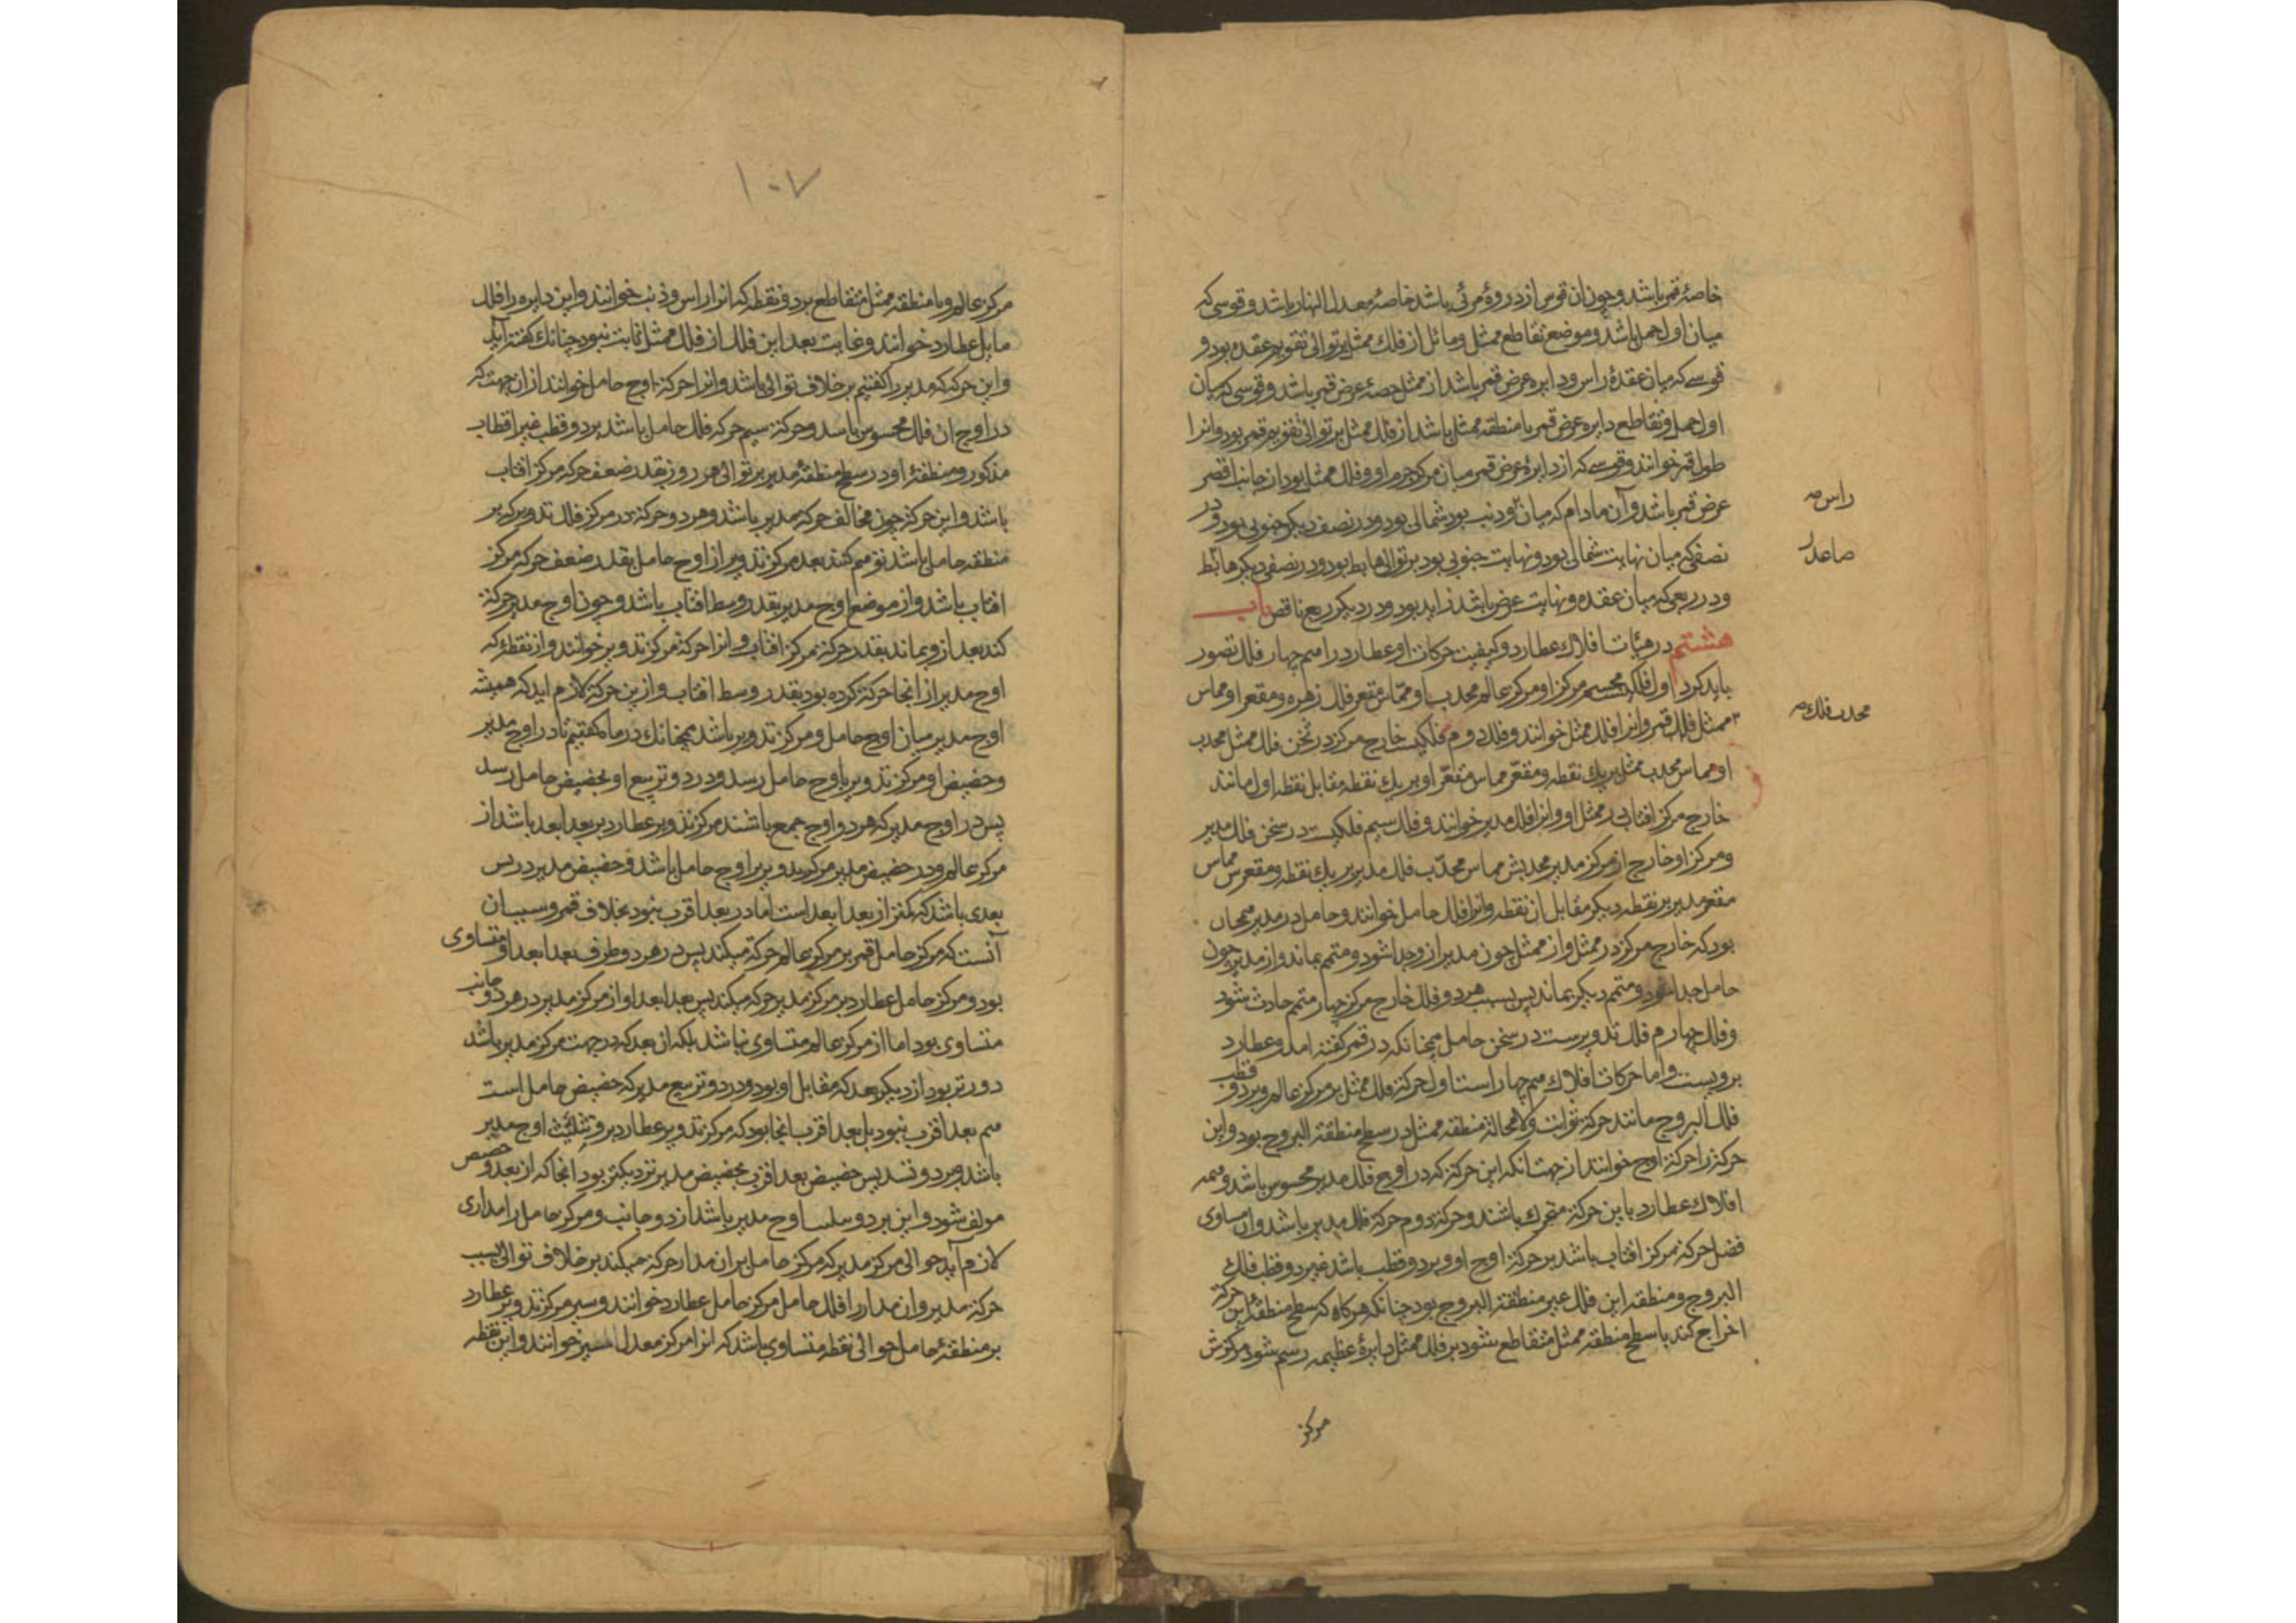 خاصهٔ قمر باشد و چون ان قوس از دروهٔ مرئی باشد خاصهٔ معدل النهار باشد و قوسی که
میان اول حمل باشد و موضع تقاطع ممثل و مائل از فلک ممثل بر توالی تقویم عقده بود و
قوسے که میان عقدهٔ راس و دایره عرض قمر باشد از ممثل حصهٔ عرض قمر باشد و قوسی که میان
اول حمل و تقاطع دایره عرض قمر با منطقه ممثل باشد از فلک ممثل بر توالی تقویم قمر بود و انرا
طول قمر خوانند و قوسے که از دایرهٔ عرض قمر میان مرکز جرم او و فلک ممثل بود از جانب اقصر
عرض قمر باشد و آن مادام که میان و ذنب بود شمالی بود و در نصف دیکر جنوبی بود و در
نصفی که میان نهایت شمالی بود و نهایت جنوبی بود بر توالی هابط بود و در نصفی دیکر هابط
و در ربعی که میان عقده و نهایت عرض باشد زاید بود و در دیکر ربع ناقص باب
هشتم در هیأت افلاک عطارد و کیفیت حرکات او عطارد را هم چهار فلک تصور
باید کرد اول فلکی مجسم مرکز او مرکز عالم محدب او مماس مقعر فلک زهره و مقعر او مماس
ممثل فلک قمر و انرا فلک ممثل خوانند و فلک دوم فلکیست خارج مرکز در ثخن فلک ممثل محدب
او مماس محدب ممثل بر یک نقطه و مقعر مماس مقعر او بر یک نقطه مقابل نقطه اول مانند
خارج مرکز افتاب در ممثل او و انرا فلک مدیر خوانند و فلک سیم فلکیست در سخن فلک مدیر
و مرکز او خارج از مرکز مدیر محدبش مماس محدّب فلک مدیر بر یک نقطه و مقعرس مماس
مقعر مدیر بر نقطه دیکر مقابل ان نقطه و انرا فلک حامل خوانند و حامل در مدیر همچنان
بود که خارج مرکز در ممثل و از ممثل چون مدیر از و جدا شود و متمم بماند و از مدیر چون
حامل جدا شود و متمم دیکر بماند پس بسبب هر دو فلک خارج مرکز چهار متمم حادث شود
و فلک چهارم فلک تدویرست در سخن حامل همچنانکه در قمر کفته امد و عطارد
برویست و اما حرکات افلاک هم چهار است اول حرکة فلک ممثل بر مرکز عالم و بر دو قطب
فلک البروج مانند حرکة ثوابت و لامحالة منطقه ممثل در سطح منطقة البروج بود و این
حرکة را حرکة اوج خوانند از جهت انکه این حرکة که در اوج فلک مدیر محسوس باشد و همه
افلاک عطارد باین حرکة متحرک باشند و حرکة دوم حرکة فلک مدیر باشد و ان مساوی
فضل حرکة مرکز افتاب باشد بر حرکة اوج او و بر دو قطب باشد غیر دو قطب فلک
البروج و منطقه این فلک غیر منطقة البروج بود چنانکه هرکاه که سطح منطقهٔ این حرکة
اخراج کند با سطح منطقه ممثل متقاطع شود بر فلک ممثل دایرهٔ عظیمه رسم شود مرکزش
مرکز
راس صه
صاعد
محدب فلک صه
۱۰۷
مرکز عالم و با منطقه ممثل متقاطع بر دو نقطه که انرا راس و ذنب خوانند و این دایره را فلک
مایل عطارد خوانند و غایت بعد این فلک از فلک ممثل ثابت نبود چنانک کفته آید
و این حرکة که مدیر را کفتیم بر خلاف توالی باشد و انرا حرکة اوج حامل خوانند از ان جهت که
در اوج ان فلک محسوس باسد و حرکة سیم حرکة فلک حامل باشد بر دو قطب غیر اقطاب
مذکور و منطقهٔ او در سطح منطقهٔ مدیر بر توالی هر روز بقدر ضعف حرکة مرکز افتاب
باشد و این حرکة چون مخالف حرکة مدیر باشد و هر دو حرکة در مرکز فلک تدویر که بر
منطقه حامل باشد توهم کنند بعد مرکز تدویر از اوج حامل بقدر ضعف حرکة مرکز
افتاب باشد و از موضع اوج مدیر بقدر وسط افتاب باشد و چون اوج مدیر حرکة
کند بعد از و بماند بقدر حرکة مرکز افتاب و انرا حرکة مرکز تدویر خوانند و از نقطهٔ که
اوج مدیر از انجا حرکة کرده بود بقدر وسط افتاب و از ین حرکة لازم اید که همیشه
اوج مدیر میان اوج حامل و مرکز تدویر باشد همچنانک در ماه کفتیم تا در اوج مدیر
و حضیض او مرکز تدویر باوج حامل رسد و در دو تربیع او بحضیض حامل رسد
پس در اوج مدیر که هر دو اوج جمع باشند مرکز تدویر عطارد بر بعد ابعد باشد از
مرکز عالم و در حضیض مدیر مرکز تدویر بر اوج حامل باشد و حضیض مدیر در پس
بعدی باشد که کمتر از بعد ابعد است اما در بعد اقرب نبود بخلاف قمر و سبب ان
آنست که مرکز حامل قمر بر مرکز عالم حرکة میکند پس در هر دو طرف بعد ابعد او متساوی
بود و مرکز حامل عطارد بر مرکز مدیر حرکة میکند پس بعد ابعد او از مرکز مدیر در هر دو جانب
متساوی بود اما از مرکز عالم متساوی نباشد بلکه ان بعد که در جهت مرکز مدیر باشد
دورتر بود از دیکر بعد که مقابل او بود و در دو تربیع مدیر که حضیض حامل است
هم بعد اقرب نبود بل بعد اقرب انجا بود که مرکز تدویر عطارد بر دو تثلیث اوج مدیر
باشد پس حضیض بعد اقرب بحضیض مدیر نزدیکتر بود انجا که از بعد و حضیض
مولف شود و این بر دو اوج مدیر باشد از دو جانب و مرکز حامل را مداری
لازم آید حوالی مرکز مدیر که مرکز حامل بر ان مدار حرکة میکند بر خلاف توالی بسبب
حرکة مدیر و ان مدار را فلک حامل مرکز حامل عطارد خوانند و سیر مرکز تدویر عطارد
بر منطقهٔ حامل حوالی نقطه متساوی باشد که انرا مرکز معدل المسیر خوانند و این نقطه